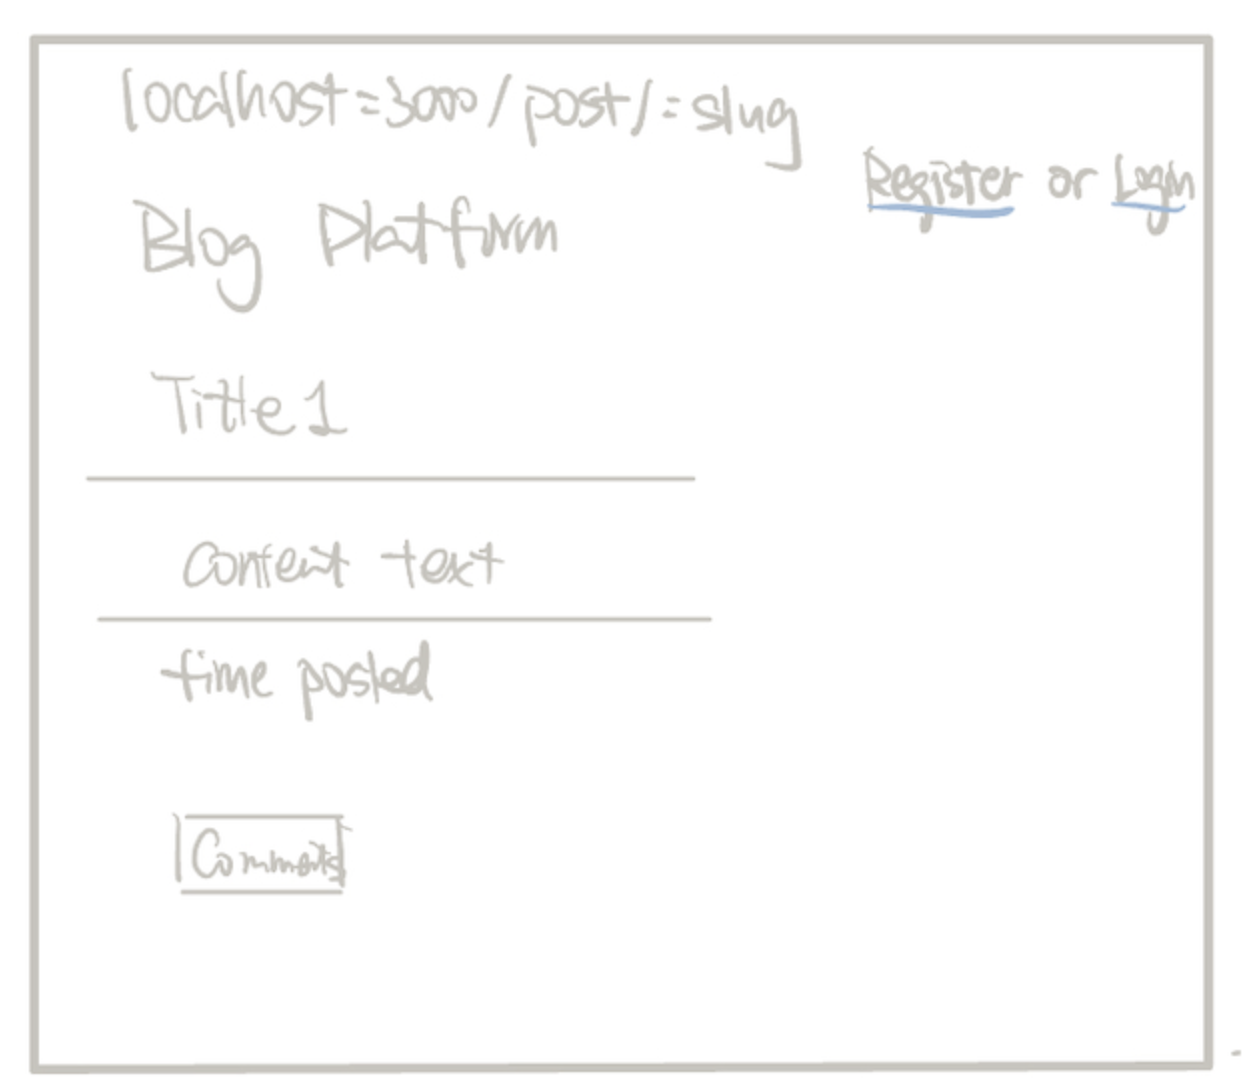 localhost=3000/post/:slug
Register or Login
Blog Platform
Title 1
Content text
time posted
Comments